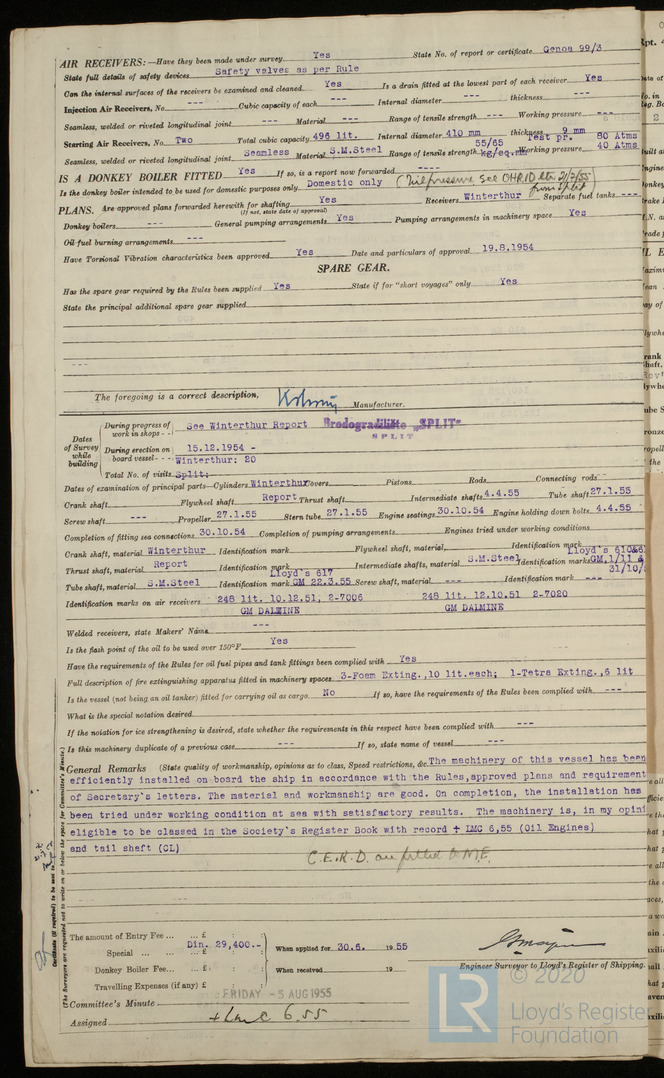 AIR RECEIVERS:—Have they been made under survey Yes State No. of report or certificate Genoa 99/3
State full details of safety devices Safety valves as per Rule
Can the internal surfaces of the receivers be examined and cleaned Yes Is a drain fitted at the lowest part of each receiver Yes
Injection Air Receivers, No. --- Cubic capacity of each --- Internal diameter --- thickness ---
Seamless, welded or riveted longitudinal joint --- Material --- Range of tensile strength --- Working pressure ---
Starting Air Receivers, No. Two Total cubic capacity 496 lit. Internal diameter 410 mm thickness 9 mm
Seamless, welded or riveted longitudinal joint Seamless Material S.M.Steel Range of tensile strength 55/65 kg/sq.mm Working pressure Test pr. 80 Atms 40 Atms
IS A DONKEY BOILER FITTED Yes If so, is a report now forwarded ---
Is the donkey boiler intended to be used for domestic purposes only Domestic only
PLANS. Are approved plans forwarded herewith for shafting Yes Receivers Winterthur Separate fuel tanks ---
(If not, state date of approval)
Donkey boilers --- General pumping arrangements Yes Pumping arrangements in machinery space Yes
Oil fuel burning arrangements ---
Have Torsional Vibration characteristics been approved Yes Date and particulars of approval 19.8.1954
SPARE GEAR.
Has the spare gear required by the Rules been supplied Yes State if for "short voyages" only Yes
State the principal additional spare gear supplied
---
The foregoing is a correct description,
Manufacturer.
Brodogradilište „SPLIT"
SPLIT
Dates of Survey while building
During progress of work in shops - - See Winterthur Report
During erection on board vessel - - - 15.12.1954 -
Winterthur: 20
Total No. of visits Split:
Dates of examination of principal parts—Cylinders Winterthur Covers Pistons Rods Connecting rods
Crank shaft Flywheel shaft Report Thrust shaft Intermediate shafts 4.4.55 Tube shaft 27.1.55
Screw shaft --- Propeller 27.1.55 Stern tube 27.1.55 Engine seatings 30.10.54 Engine holding down bolts 4.4.55
Completion of fitting sea connections 30.10.54 Completion of pumping arrangements Engines tried under working conditions
Crank shaft, material Winterthur Identification mark Flywheel shaft, material Identification mark
Thrust shaft, material Report Identification mark Intermediate shafts, material S.M.Steel Identification marks Lloyd's 610&6 GM,1/11 & 31/10/
Tube shaft, material S.M.Steel Identification mark Lloyd's 617 GM 22.3.55 Screw shaft, material --- Identification mark ---
Identification marks on air receivers 248 lit. 10.12.51, 2-7006 248 lit. 12.10.51 2-7020
GM DALMINE GM DALMINE
Welded receivers, state Makers' Name ---
Is the flash point of the oil to be used over 150°F. Yes
Have the requirements of the Rules for oil fuel pipes and tank fittings been complied with Yes
Full description of fire extinguishing apparatus fitted in machinery spaces 3-Foam Exting.,10 lit.each; 1-Tetra Exting.,6 lit
Is the vessel (not being an oil tanker) fitted for carrying oil as cargo No If so, have the requirements of the Rules been complied with ---
What is the special notation desired
If the notation for ice strengthening is desired, state whether the requirements in this respect have been complied with ---
Is this machinery duplicate of a previous case --- If so, state name of vessel ---
General Remarks (State quality of workmanship, opinions as to class, Speed restrictions, &c. The machinery of this vessel has been
efficiently installed on board the ship in accordance with the Rules,approved plans and requirement
of Secretary's letters. The material and workmanship are good. On completion, the installation has
been tried under working condition at sea with satisfactory results. The machinery is, in my opini
eligible to be classed in the Society's Register Book with record + LMC 6,55 (Oil Engines)
and tail shaft (CL)
C.E.R.D. are fitted to M.E.
(The Surveyors are requested not to write on or below the space for Committee's Minute.)
The amount of Entry Fee ... £ : :
Special ... ... £ Din. 29,400.-
Donkey Boiler Fee... ... £ : :
Travelling Expenses (if any) £ : :
When applied for 30.6. 1955
When received 19
Engineer Surveyor to Lloyd's Register of Shipping.
Committee's Minute FRIDAY - 5 AUG 1955
Assigned + LMC 6.55
LR © 2020
Lloyd's Register
Foundation